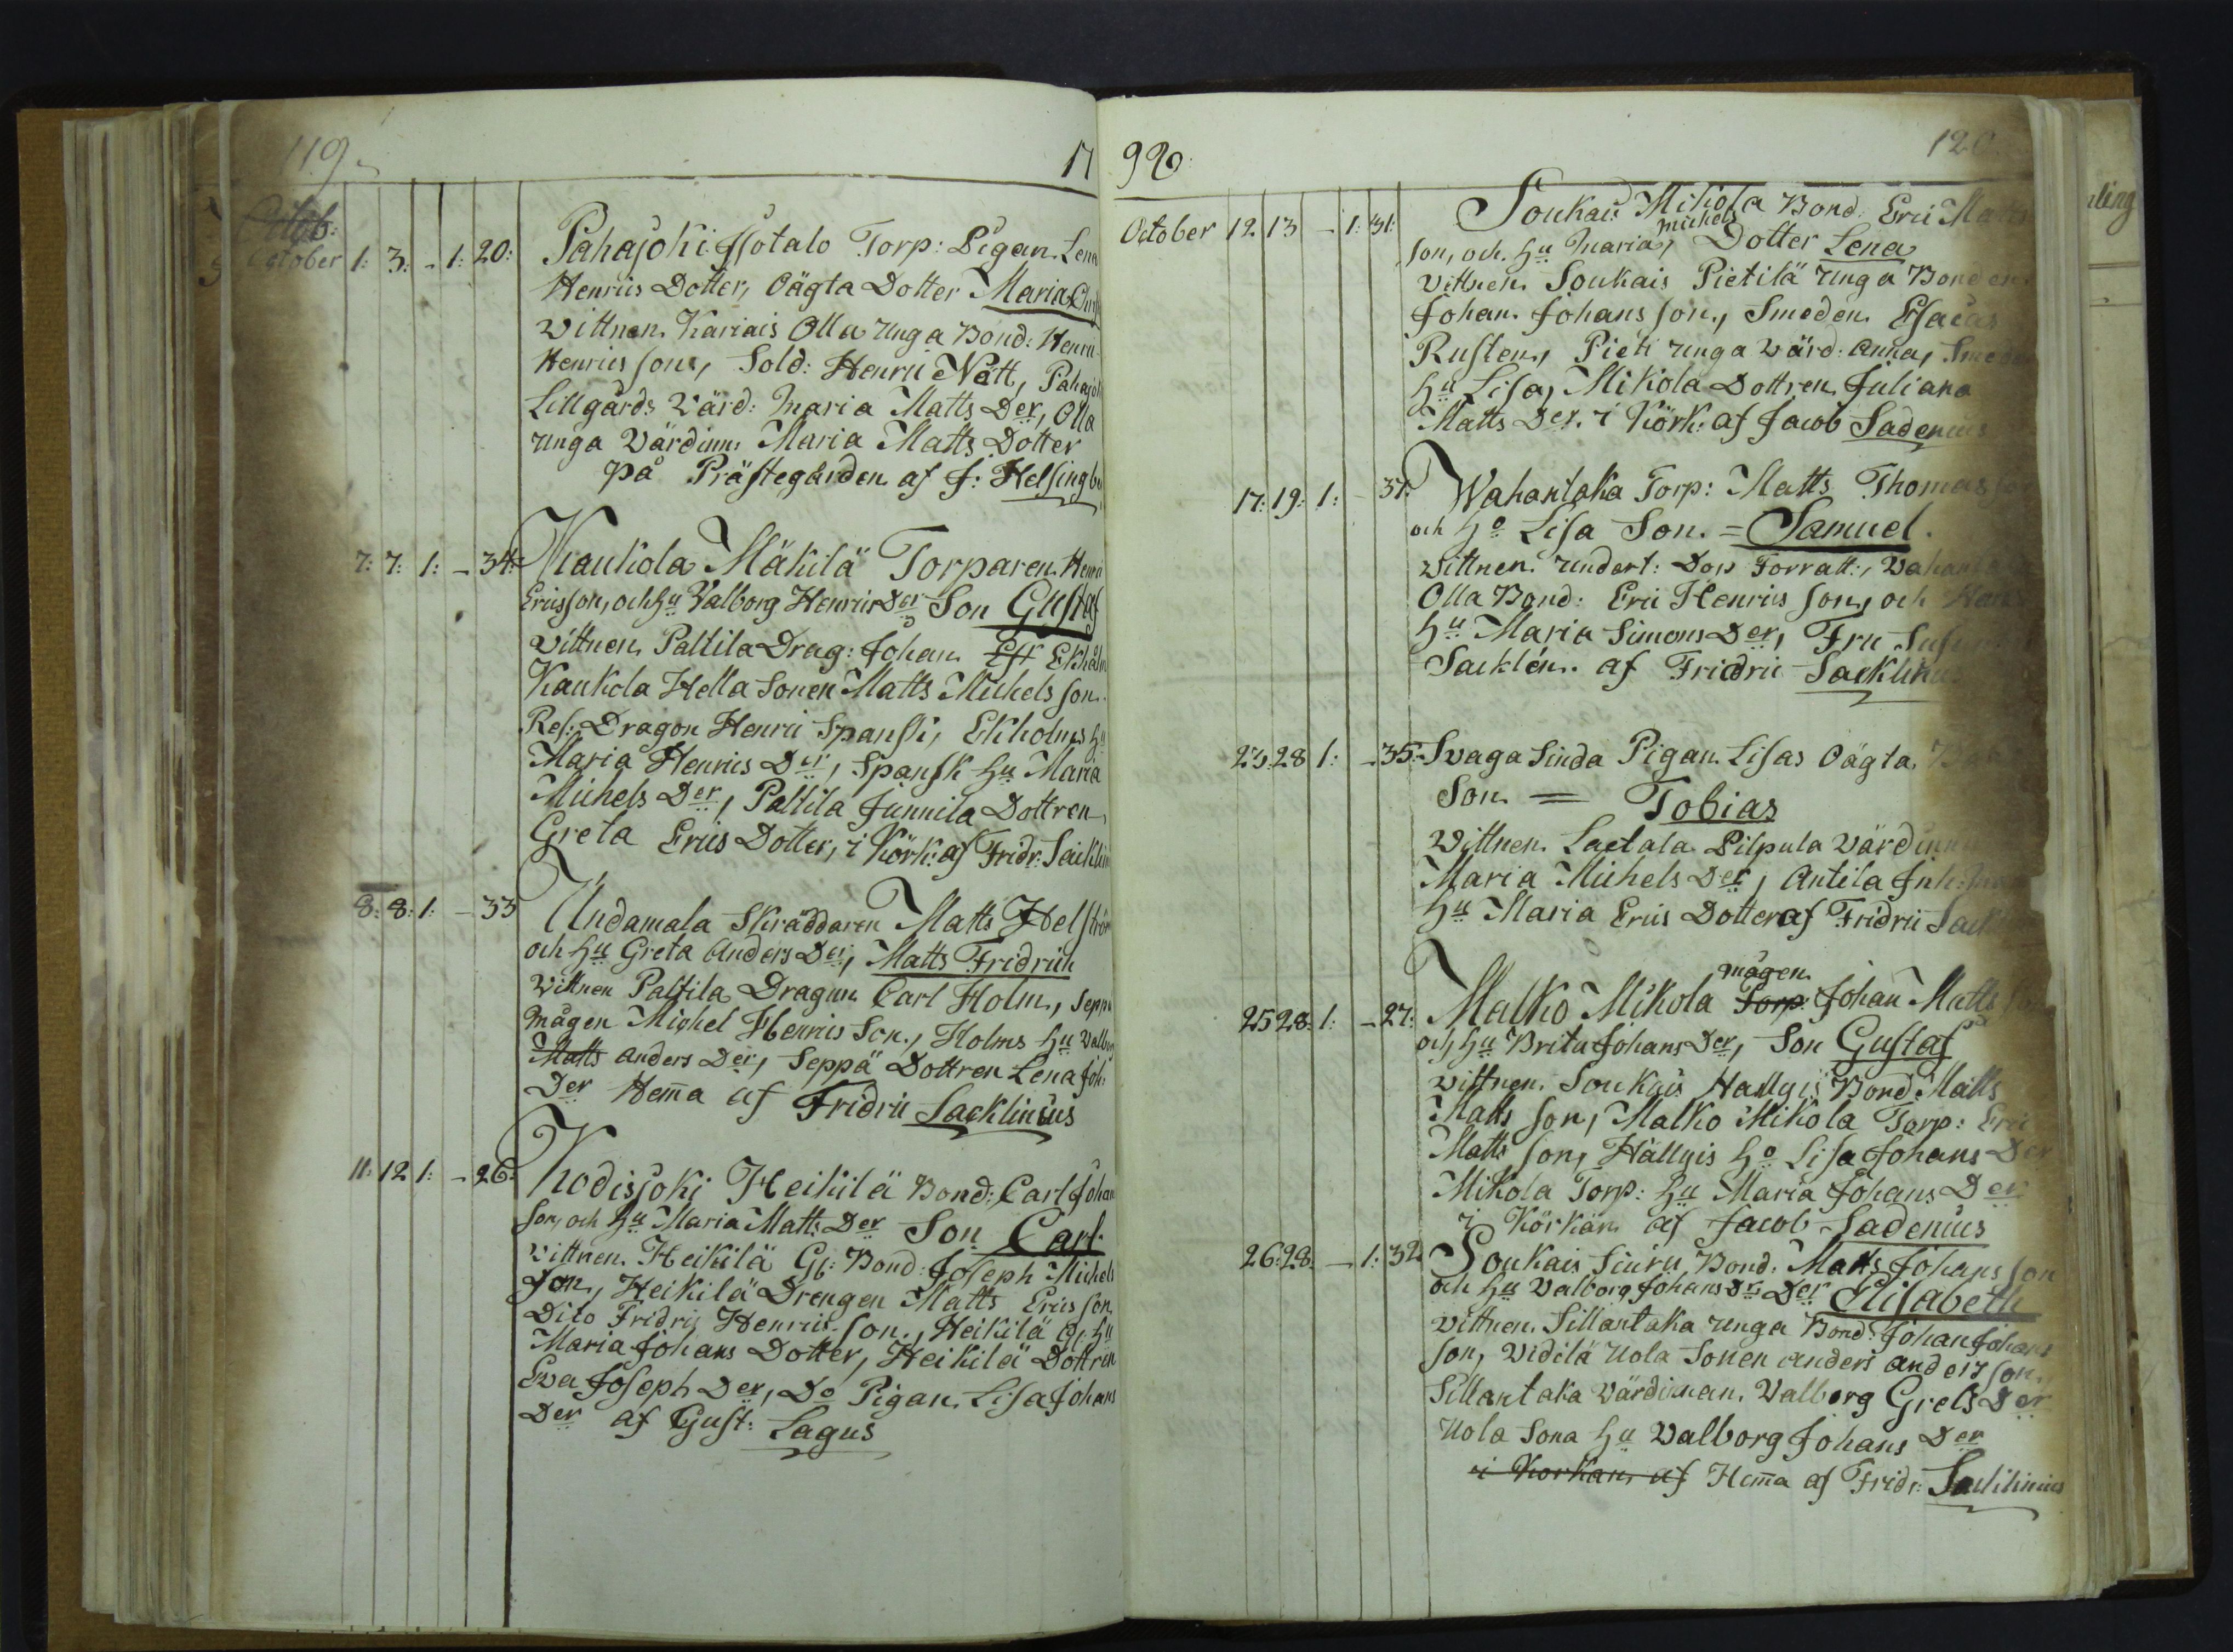 119
17
Octob:
October 1: 3: - 1: 20: Pahajoki Isotalo Torp: Pigan Lena
Henrics Dotter, Oägta Dotter Maria
Vittnen Kariais Olla unga Bond: Henric
Henrics son, Sold: Henric Nätt, Pahajoki
Lillgårds Värd: Maria Matts Der, Olla
unga Värdinn: Maria Matts Dotter
på Prästegården af J: Helsingb
7: 7: 1: - 34: Kaukola Mäkilä Torparen Henric
Ericsson, och hu Valborg Henrics Der Son Gustaf
Vittnen Paltila Drag: Johan Ekholm
Kaukola Hella Sonen Matts Michels son
Res: Dragon Henric Spansk, Ekholms hu
Maria Henrics Der, Spansk hu Maria
Michels Der, Paltila Junnila Dottren
Greta Erics Dotter, i Körk: af Fridr: Sacklin
8: 8: 1: - 33 Undamala Skräddaren Matts Helström
och hu Greta Anders Der, Matts Fridrich
Vittnen Paltila Dragun Carl Holm, Seppä
mågen Michel Henrics Son, Holms hu Valbor
Matts Anders Der, Seppä Dottren Lena Joh:
Der Hem̄a af Fridric Sacklinius
11: 12 1: - 26: Kodisjoki Heikilä Bond: Carl Johan
son, och hu Maria Matts Der Son Carl
Vittnen Heikilä Gl: Bond: Joseph Michels
son, Heikilä Drengen Matts Erics son,
Dito Fridric Henrics son, Heikilä Gl: hu
Maria Johans Dotter, Heikilä Dottren
Eva Joseph Der, Do Pigan Lisa Johans
Der af Gust: Lagus
99:
120
October 12 13 - 1: 31: Soukais Mikola Bond: Eric Matts
Michels
son, och hu Maria, Dotter Lena
Vittnen Soukais Pietilä Unga Bonden
Johan Johans son, Smeden Esaias
Rusten, Pieti unga Värd: Anna, Smeden
hu Lisa, Mikola Dottren Juliana
Matts Der. i Körk: af Jacob Sadenius
17: 19: 1: - 37: Wahantaka Torp: Matts Thomas
och ho Lisa Son = Samuel.
Vittnen Undert: Forratt:, Vahanta
Olla Bond: Eric Henrics son, och
hu Maria Simons Der, Fru
Sacklén. af Fridric Sacklinius
23: 28 1: - 35: Svaga Sinda Pigan Lisas Oägta
Son = Tobias
Vittnen Laetala Pilpula Värdinn
Maria Michels Der, Antila Inh:
hu Maria Erics Dotter af Fridric
mågen
25 28: 1: - 27: Malko Mikola Torp: Johan Matts
och hu Brita Johans Der, Son Gustaf
Vittnen Soukais Hallgis Bond: Matts
Matts son, Malko Mikola Torp: Eric
Matts son, Hällgis ho Lisa Johans Der
Mikola Torp: hu Maria Johans Der
i Körkan af Jacob Sadenius
26: 28: - 1: 32 Soukais Siuru Bond: Matts Johans son
och hu Valborg Johans Dr Der Elisabeth
Vittnen Sillantaka unga Bond: Johan Johans
son, Vidilä Uola Sonen Anders Anders son,
Sillantaka Värdinnan Valborg Grels Der
Uola Sona hu Valborg Johans Der
i Körkan af Hem̄a af Fridr: Sacklinius